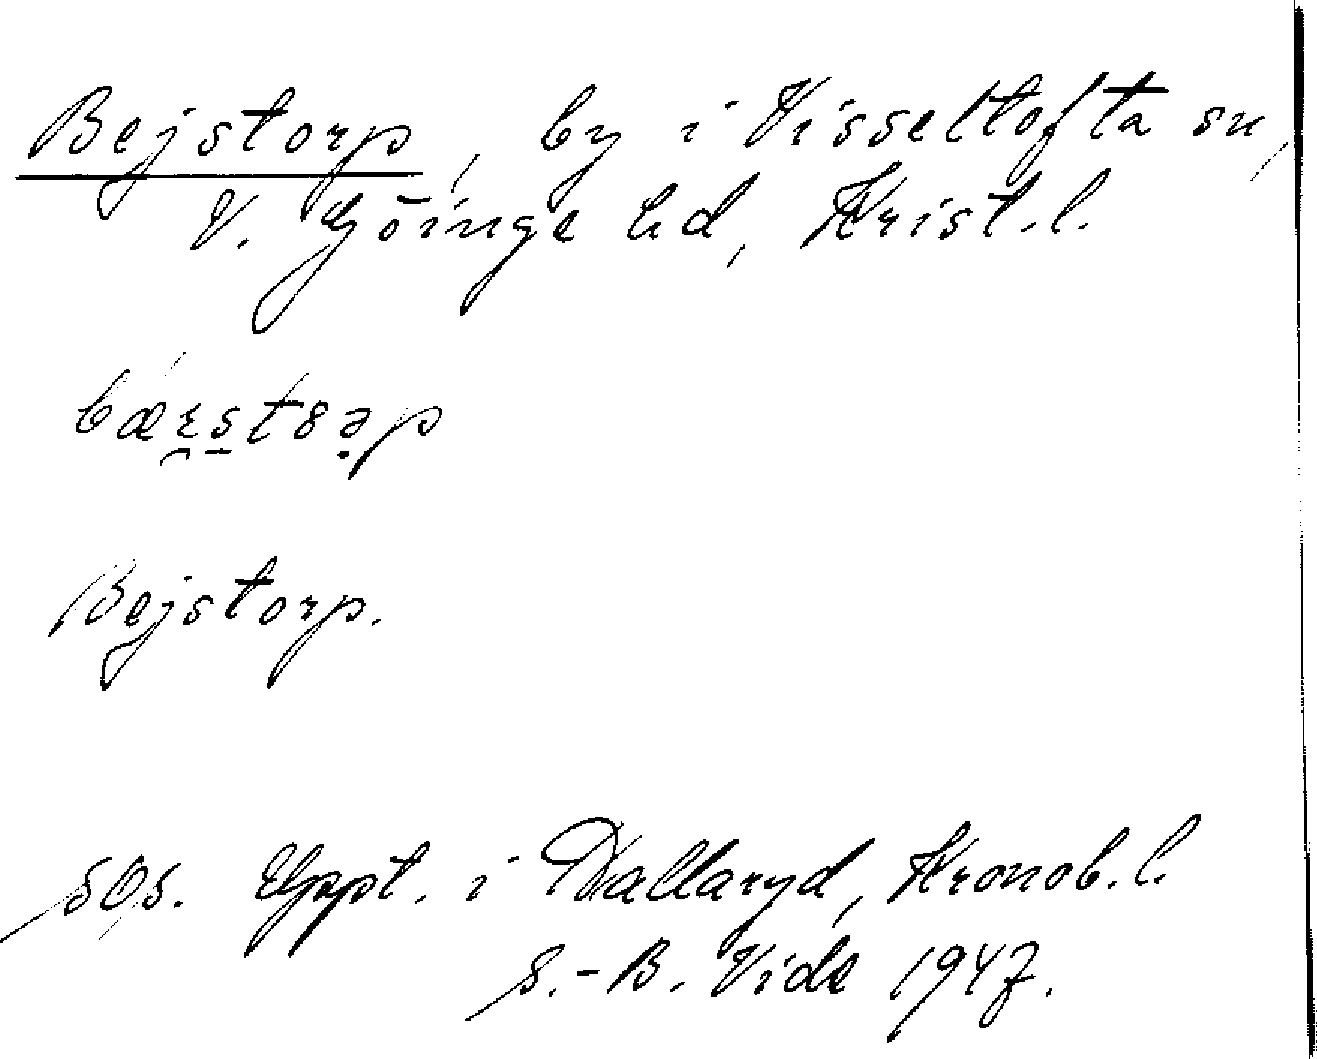 Bejstorp, by i Visseltofta sn,
V. Göinge hd, Krist.l.
Bejstorp.
Uppt. i Hallaryd, Kronob.l.
S.-B. Vide 1947.